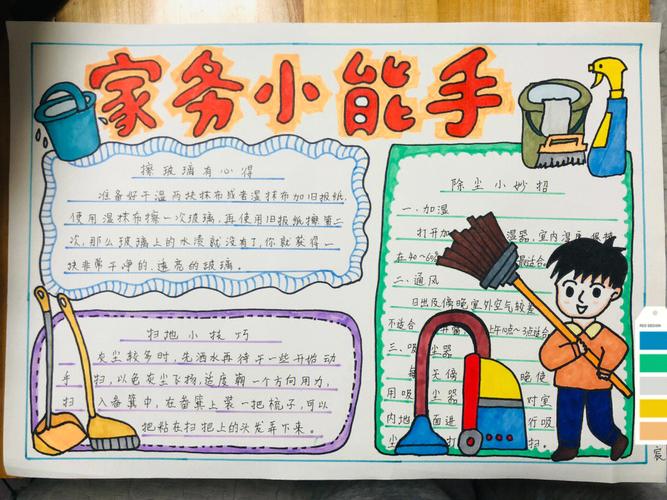 家务小能手
擦玻璃有心得
准备好干湿两块抹布或者湿抹布加旧报纸,
使用湿抹布擦一次玻璃,再使用旧报纸擦第二
次,那么玻璃上的水渍就没有了,你就获得一
块非常干净的、透亮的玻璃。
扫地小技巧
灰尘较多时,先洒水再待干一些开始动
手 扫,以免灰尘飞扬,适度朝一个方向用力,
扫 入畚箕中,在畚箕上装一把梳子,可以
把粘在扫把上的头发弄下来。
除尘小妙招
一、加湿
打开加 湿器,室内湿度保持
在40~60% 最适合。
二、通风
日出及傍晚室外空气较差
不适合 上午10点~3点适合
三、吸尘器
每天 晚 使
用吸尘器 对室
内地面进行吸
尘 打 扫。
RED DESIGN
宸